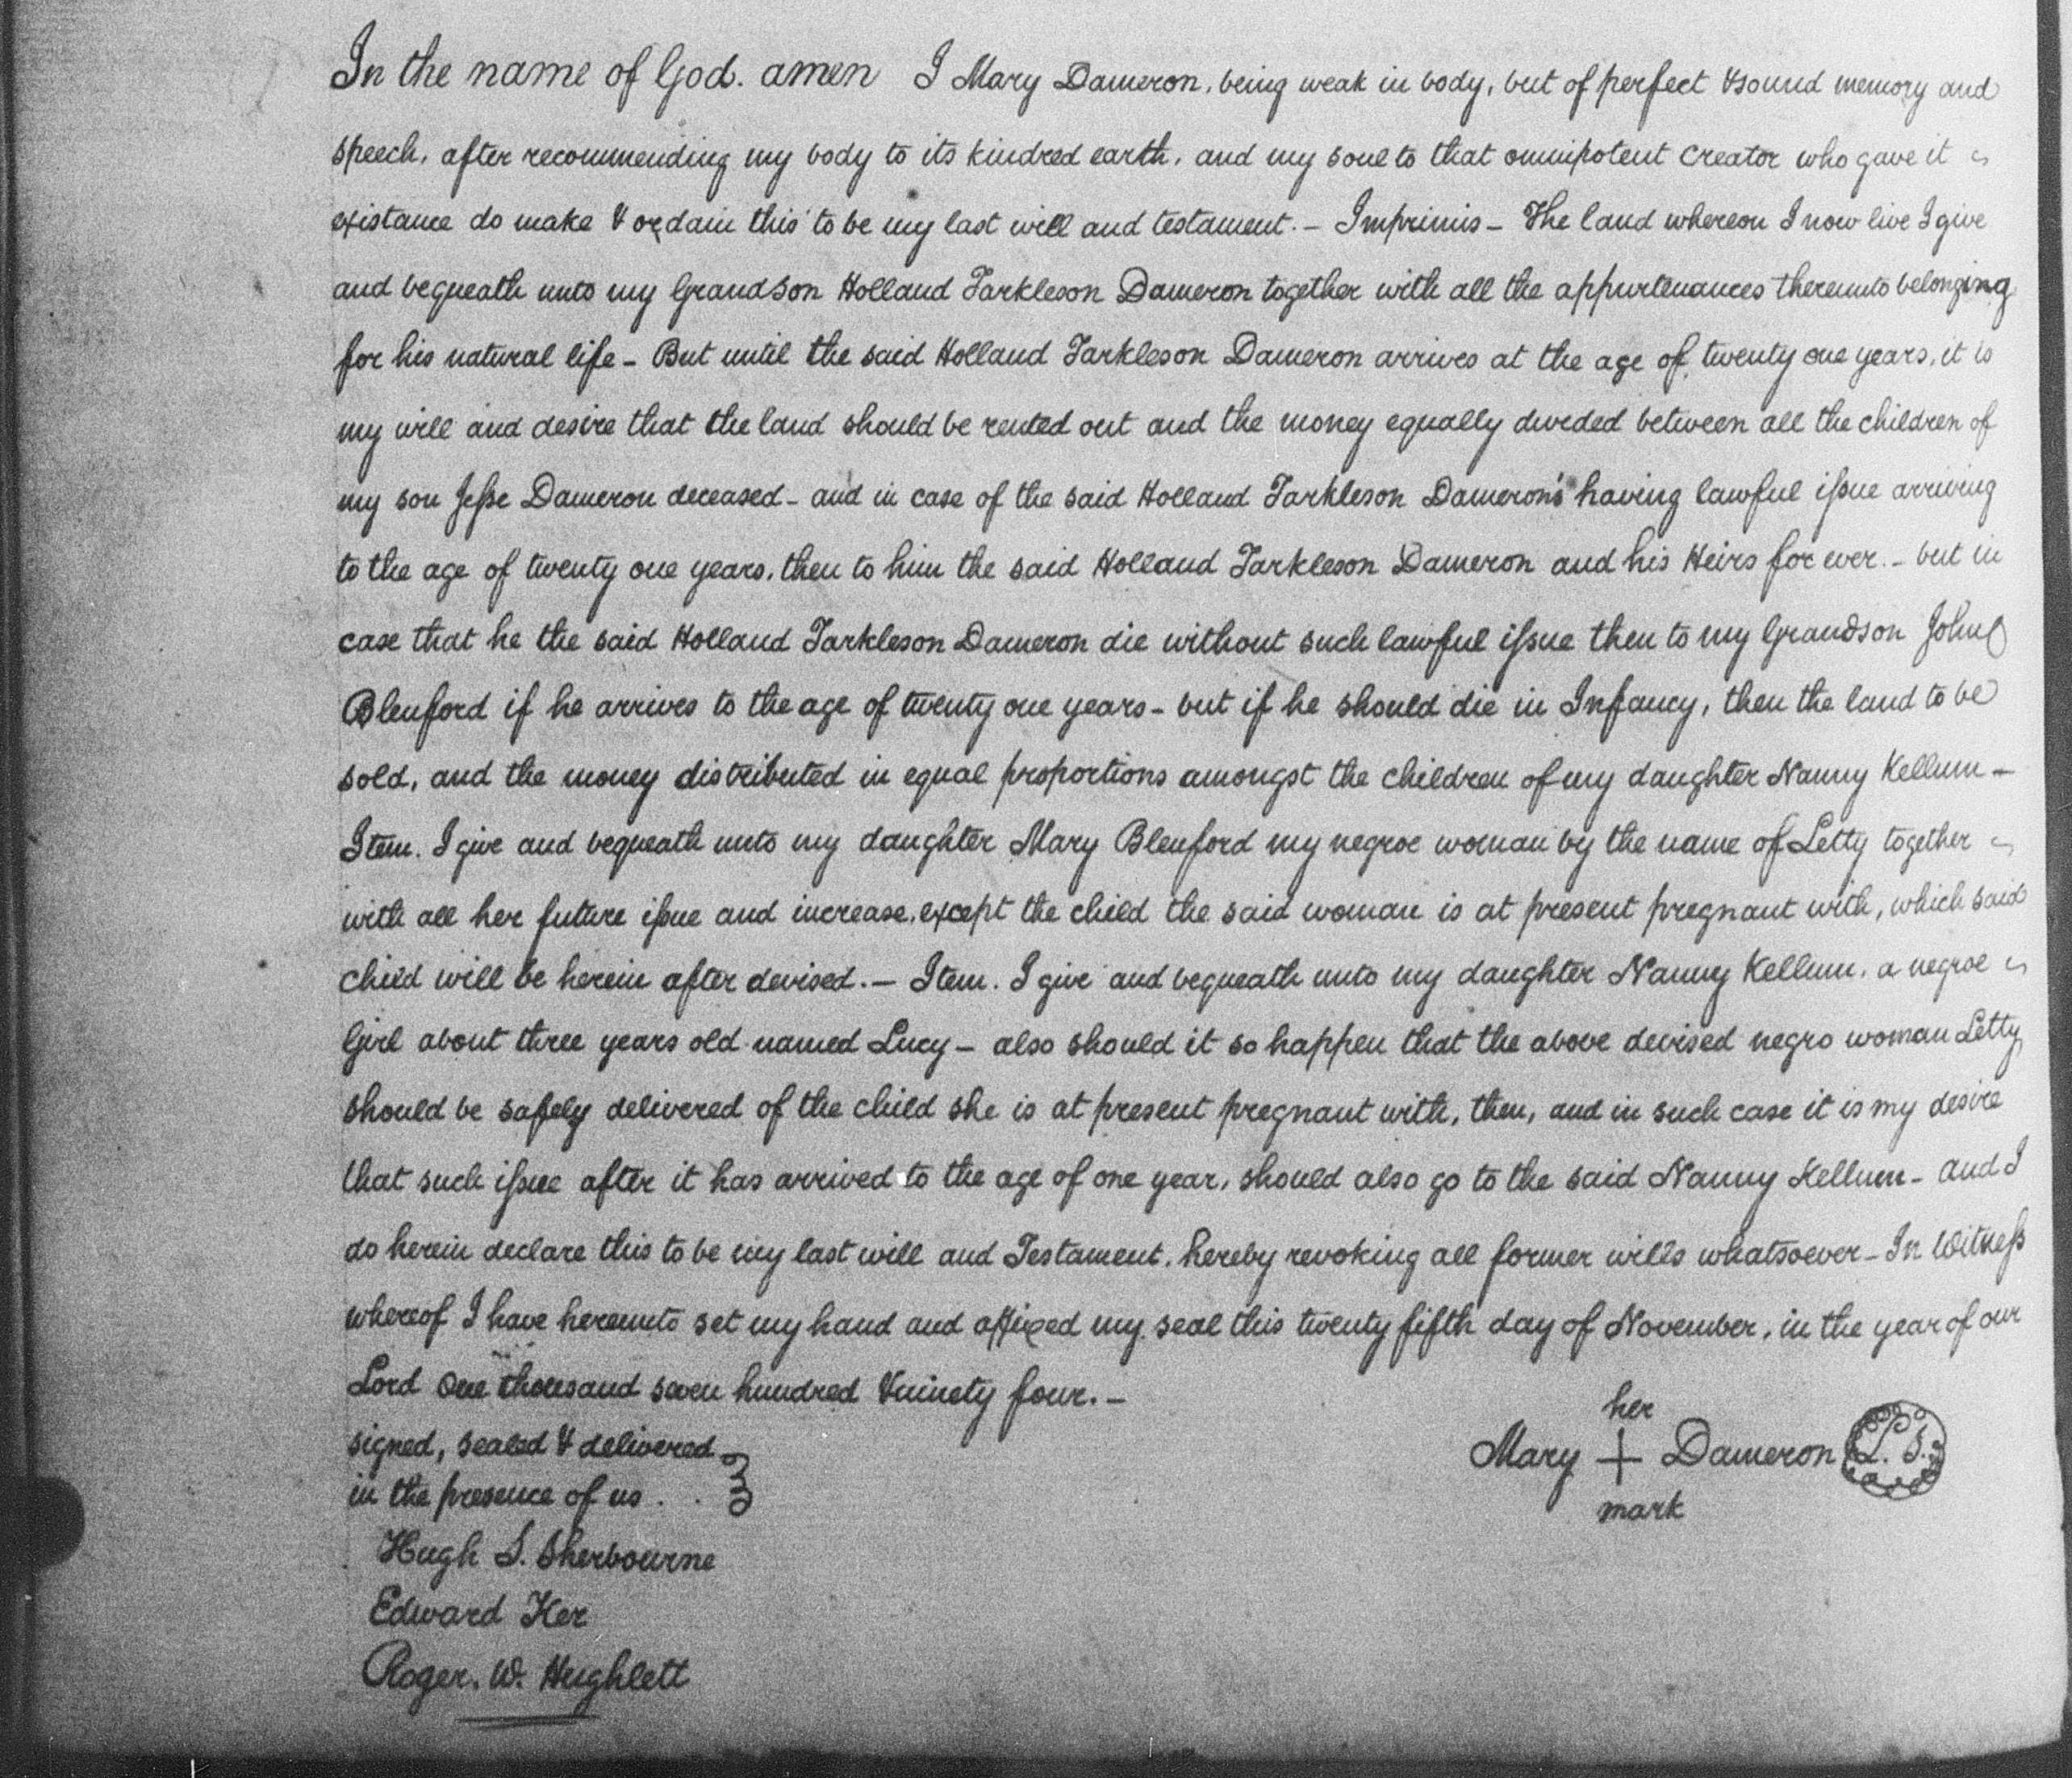 In the name of God. amen I Mary Dameron, being weak in body, but of perfect & sound memory and
speech, after recommending my body to its kindred earth, and my soul to that omnipotent Creator who gave it
existance do make & ordain this to be my last will and testament. – Imprimis – The land whereon I now live I give
and bequeath unto my Grandson Holland Tarkleson Dameron together with all the appurtenances thereunto belonging
for his natural life – But until the said Holland Tarkleson Dameron arrives at the age of twenty one years, it is
my will and desire that the land should be rented out and the money equally divided between all the children of
my son Jesse Dameron deceased – and in case of the said Holland Tarkleson Dameron's having lawful issue arriving
to the age of twenty one years, then to him the said Holland Tarkleson Dameron and his Heirs for ever. – but in
case that he the said Holland Tarkleson Dameron die without such lawful issue then to my Grandson John
Blenford if he arrives to the age of twenty one years – but if he should die in Infancy, then the land to be
sold, and the money distributed in equal proportions amongst the children of my daughter Nanny Kellum –
Item. I give and bequeath unto my daughter Mary Blenford my negroe woman by the name of Letty together
with all her future issue and increase, except the child the said woman is at present pregnant with, which said
child will be herein after devised. – Item. I give and bequeath unto my daughter Nanny Kellum, a negroe
Girl about three years old named Lucy – also should it so happen that the above devised negro woman Letty
should be safely delivered of the child she is at present pregnant with, then, and in such case it is my desire
that such issue after it has arrived to the age of one year, should also go to the said Nanny Kellum – and I
do herein declare this to be my last will and Testament, hereby revoking all former wills whatsoever – In Witness
whereof I have hereunto set my hand and affixed my seal this twenty fifth day of November, in the year of our
Lord One thousand seven hundred & ninety four. –
signed, sealed & delivered
in the presence of us . .
her
Mary + Dameron L. S.
mark
Hugh S. Sherbourne
Edward Ker
Roger. W. Hughlett